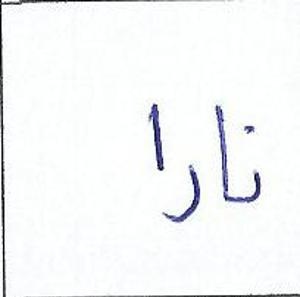 نارا